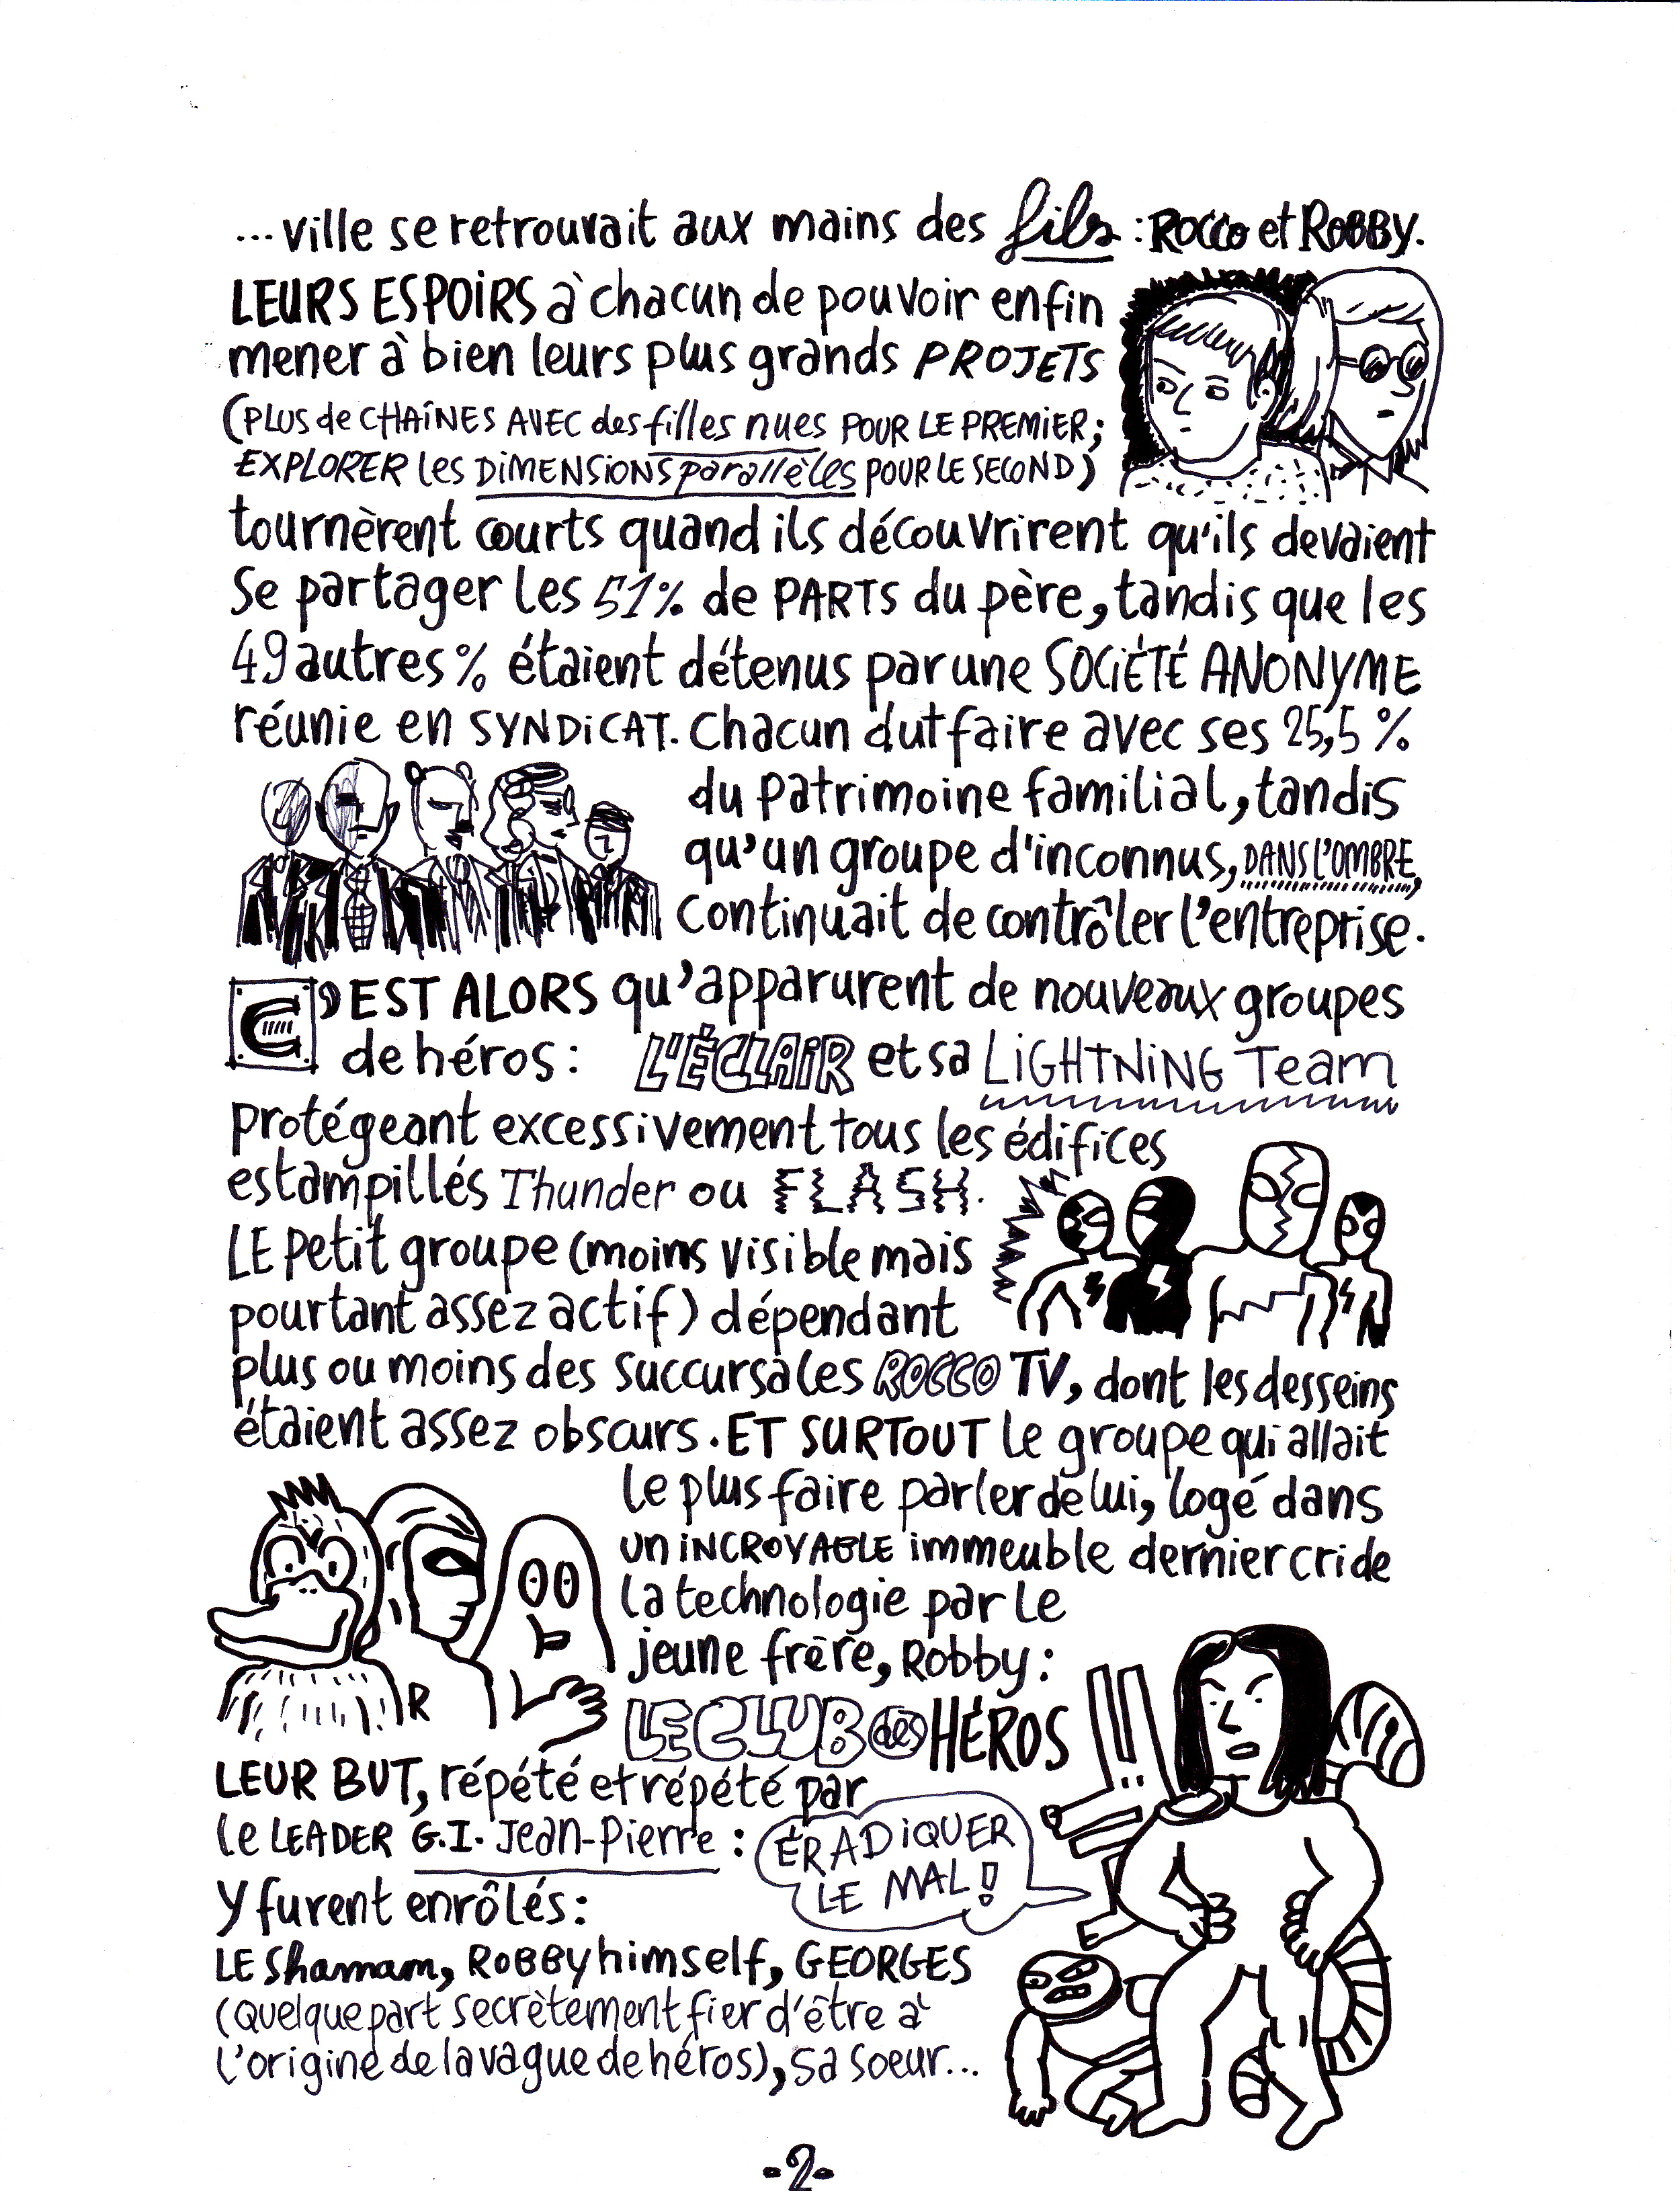 ...ville se retrouvait aux mains des fils : ROCCO et ROBBY.
LEURS ESPOIRS à chacun de pouvoir enfin
mener à bien leurs plus grands PROJETS
(PLUS de CHAÎNES AVEC des filles nues POUR LE PREMIER;
EXPLORER les DIMENSIONS parallèles POUR LE SECOND)
tournèrent courts quand ils découvrirent qu'ils devaient
se partager les 51% de PARTS du père, tandis que les
49 autres % étaient détenus par une SOCIÉTÉ ANONYME
réunie en SYNDICAT. Chacun dut faire avec ses 25,5 %
du patrimoine familial, tandis
qu'un groupe d'inconnus, DANS L'OMBRE,
continuait de contrôler l'entreprise.
C'EST ALORS qu'apparurent de nouveaux groupes
de héros : L'ÉCLAIR et sa LIGHTNING Team
protégeant excessivement tous les édifices
estampillés Thunder ou FLASH.
LE petit groupe (moins visible mais
pourtant assez actif) dépendant
plus ou moins des succursales ROCCO TV, dont les desseins
étaient assez obscurs. ET SURTOUT le groupe qui allait
le plus faire parler de lui, logé dans
un INCROYABLE immeuble dernier cri de
la technologie par le
jeune frère, Robby :
LE CLUB des HÉROS
R
LEUR BUT, répété et répété par
le LEADER G.I. Jean-Pierre :
ÉRADIQUER
LE MAL!
Y furent enrôlés :
LE Shamam, ROBBY himself, GEORGES
(Quelque part secrètement fier d'être à
l'origine de la vague de héros), sa soeur...
-2-